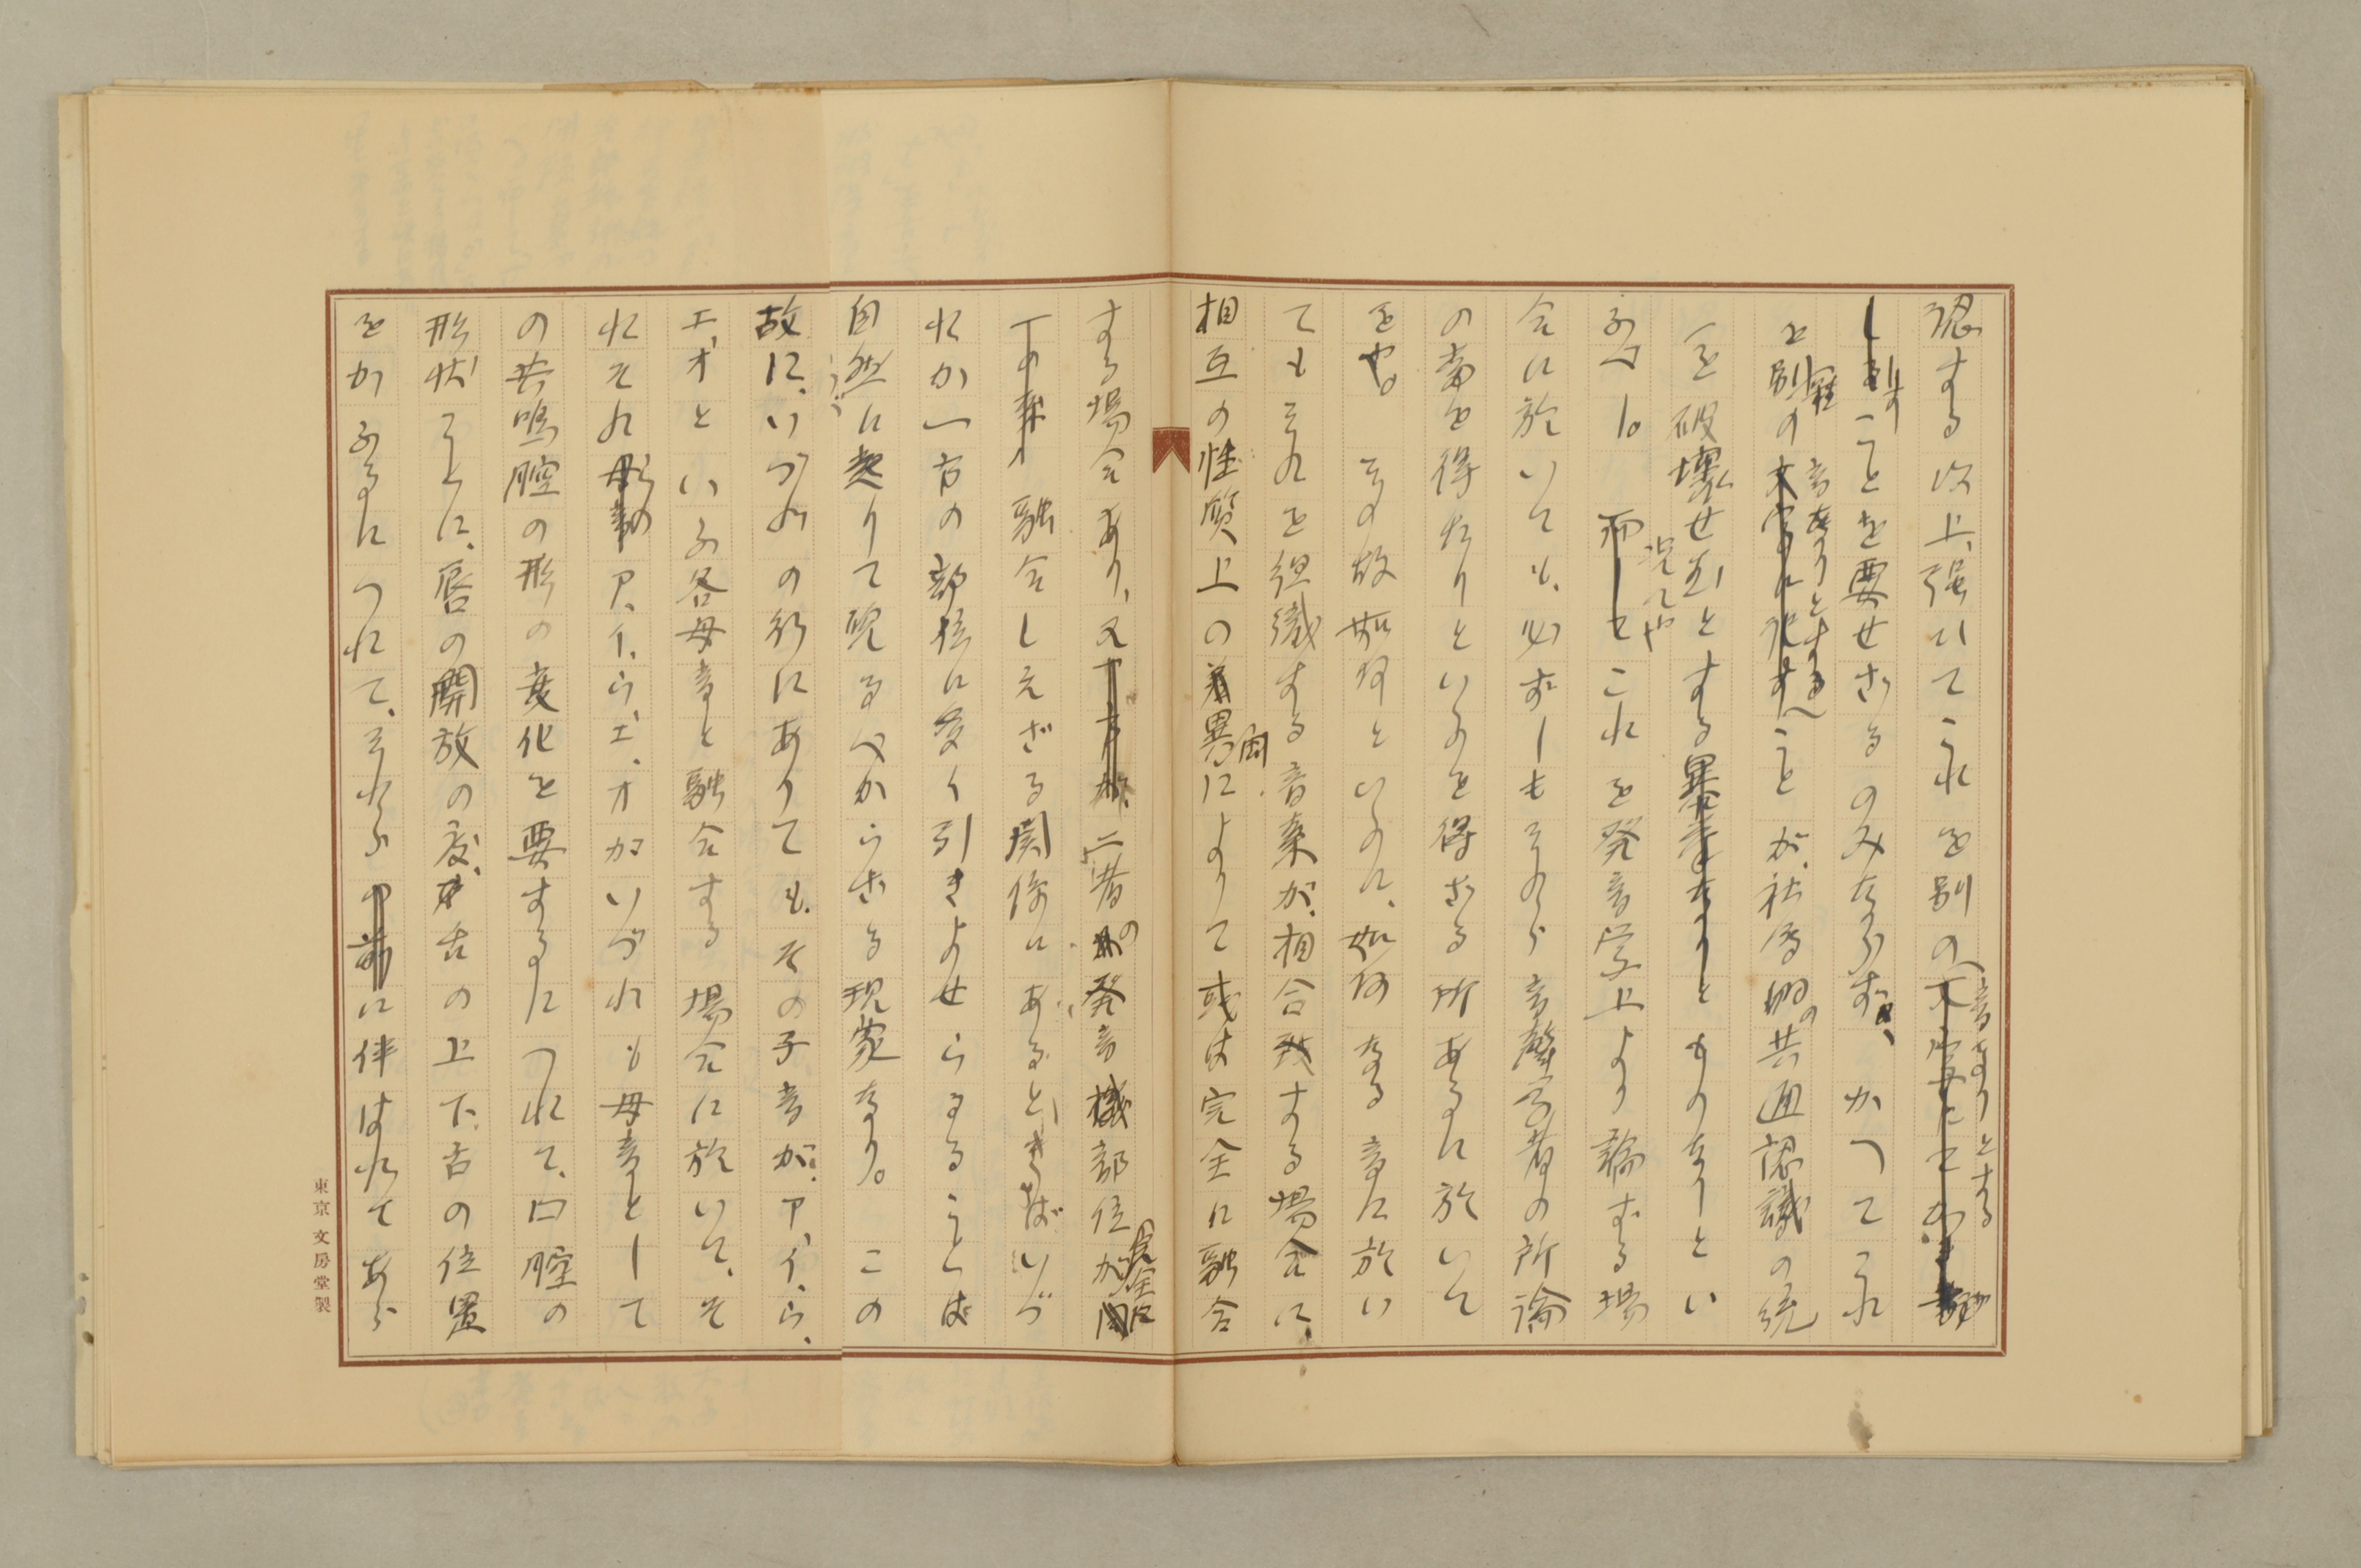 認する以上、強ひてこれを別の音なりとする
ことを要せざるのみならず、かつてこれ
を別の音なりとすることが、社会の共通認識の統
一を破壊せむとするものなりとい
ふべし。況んやこれを発音学上より論ずる場
合に於いても、必ずしもそれら音声学者の所論
の当を得たりといふを得ざる所あるに於いて
をや。その故如何といふに、如何なる音に於い
てもそれを組織する音素が、相合致する場合に、
相互の性質上の異同によりて或は完全に融合
する場合あり、又二者の発音機部位が
融合しえざる関係にあるときは、いづ
れか一方の部位に多く引きよせらるることは
自然に起りて免るべからざる現象なり。この
故に、いづれの行にありても、その子音が、ア、イ、う、
エ、オといふ各母音と融合する場合に於いて、そ
れそれア、イ、う、エ、オがいづれも母音として
の共鳴腔の形の変化を要するにつれて、口腔の
形状ことに、唇の開放の度、舌の上下、舌の位置
をかふるにつれて、それらに伴はれてあら
東京 文房堂製